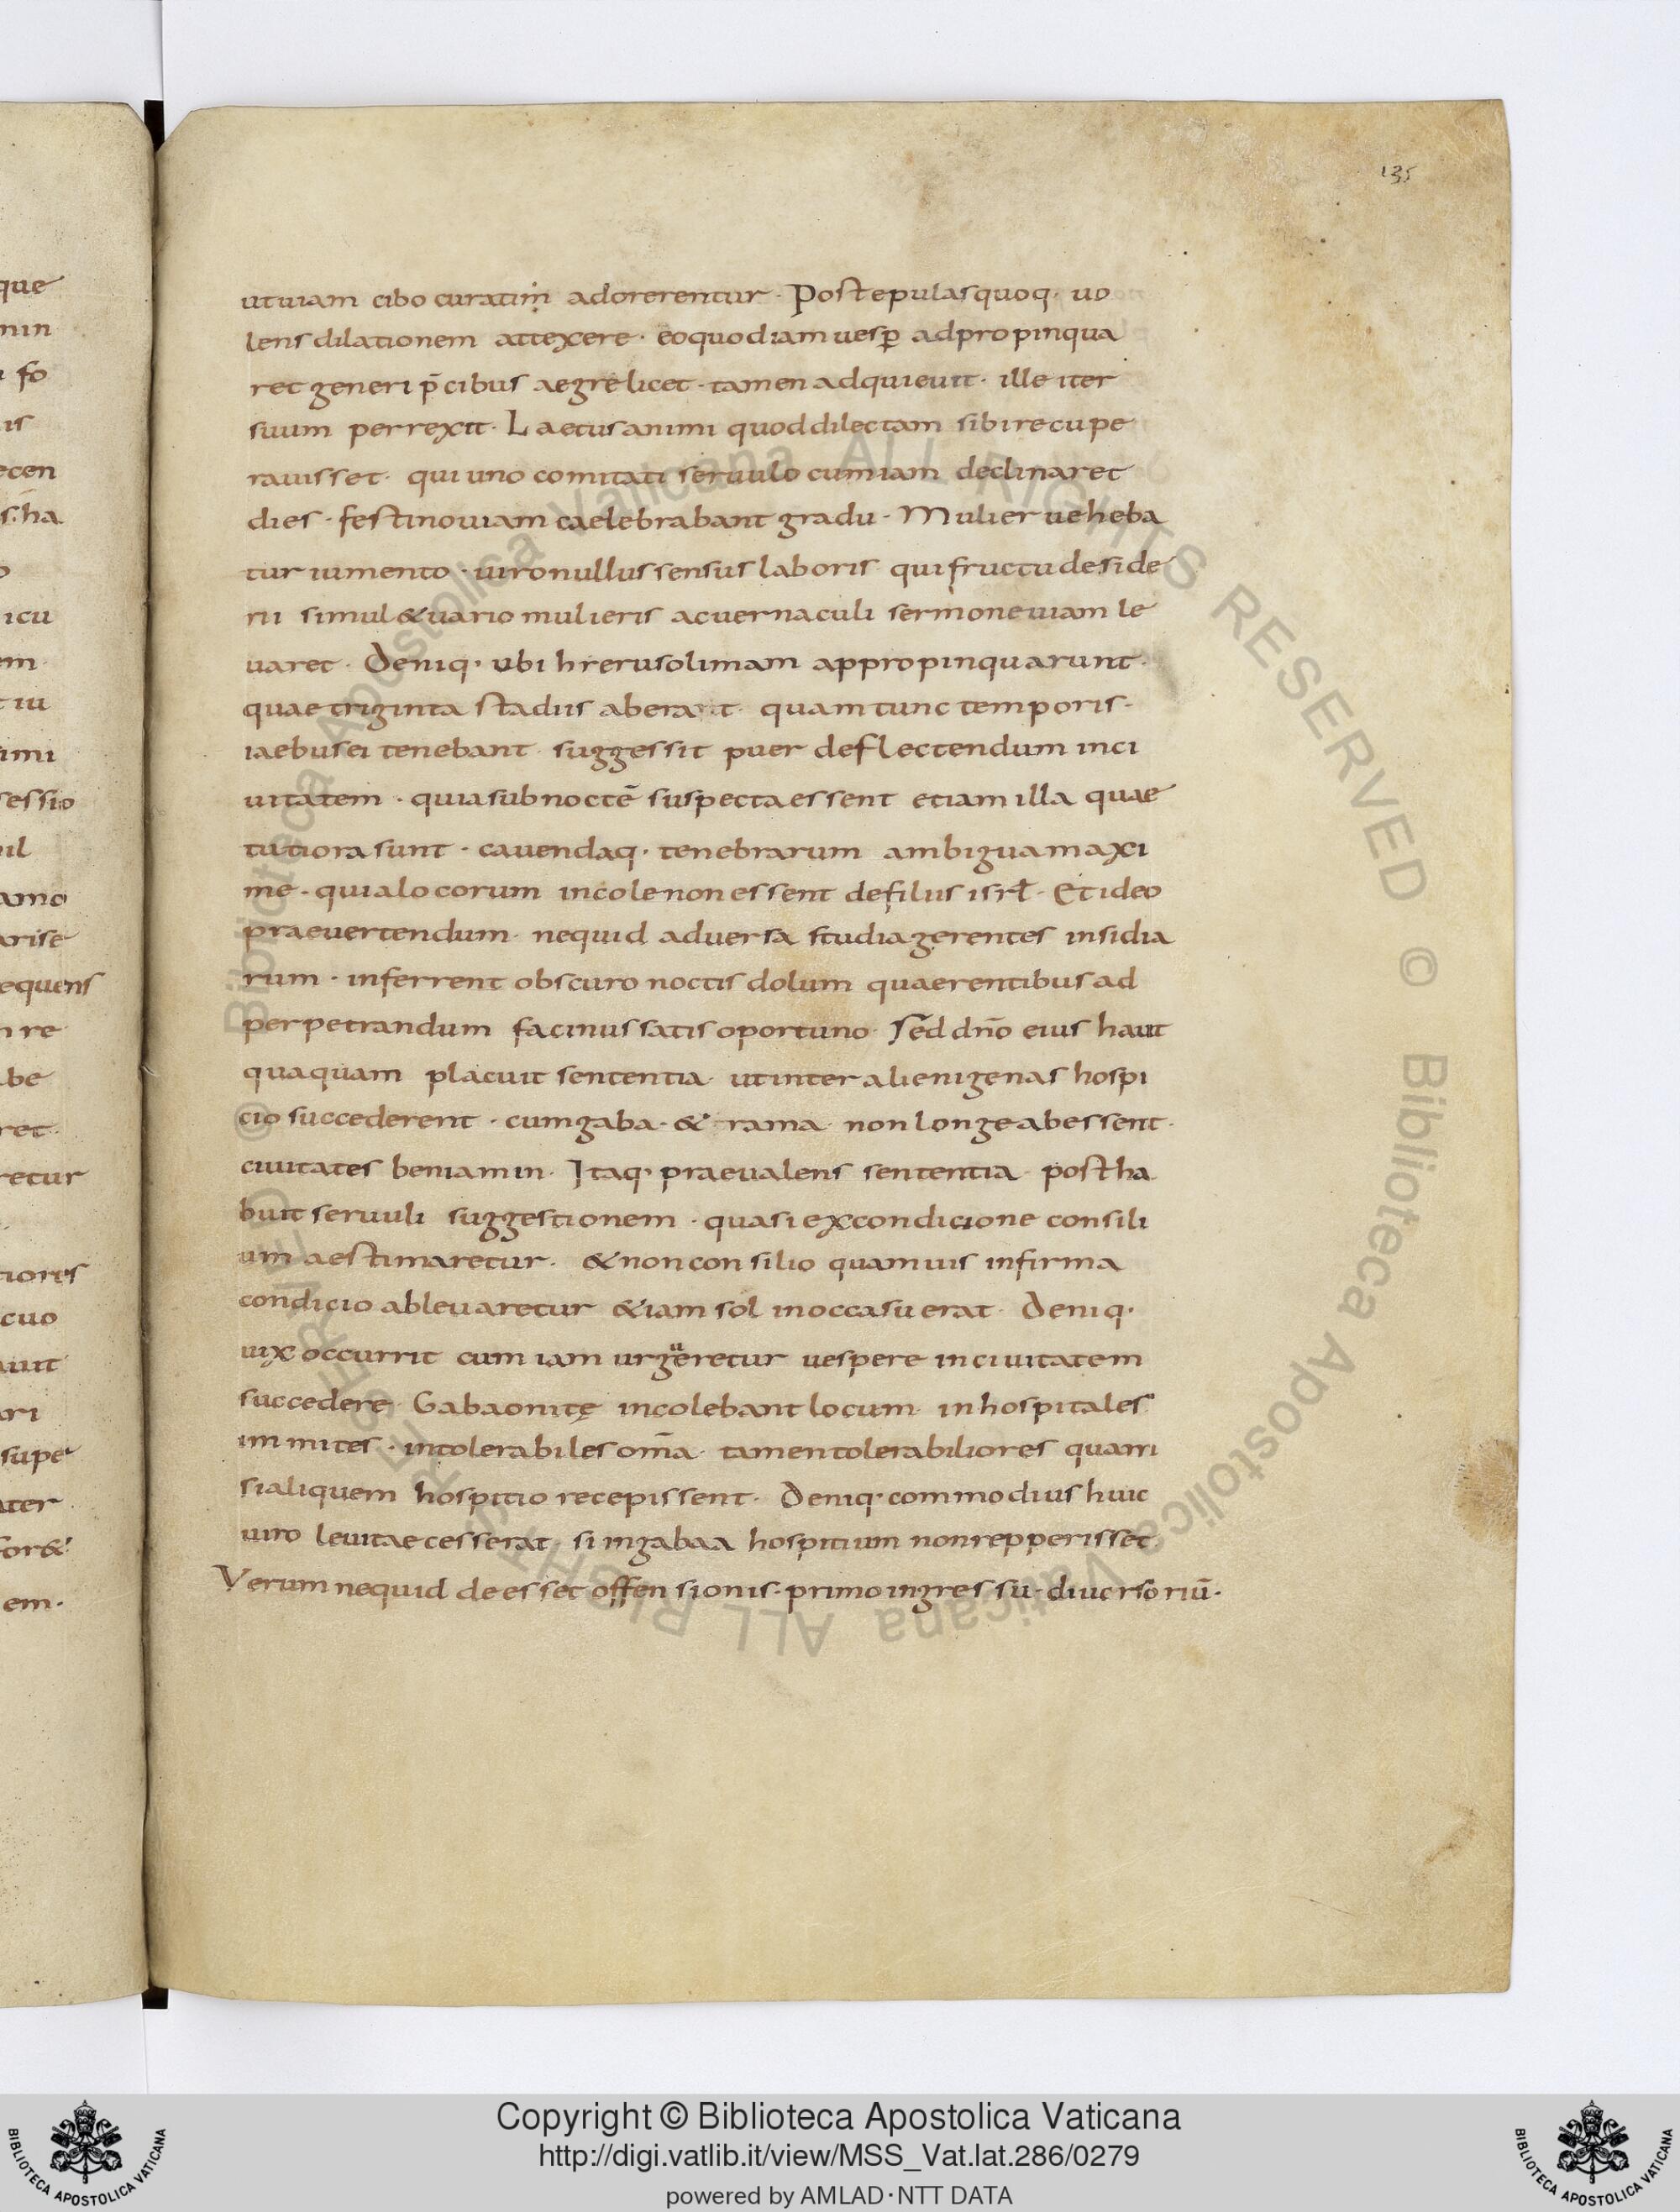 135
que
min
i fo
is
ecen
s. ha
o
icu
em
t iu
imi
sessio
uil
amo
arise
equens
n re
be
ret.
retur
tiores
cuo
auit
ari
supe
ater
for&
em.
ut uiam cibo curatim adorerentur. Post epulas quoq. uo
lens dilationem attexere. eo quod iam uesp̄ adpropinqua
ret generi p̄cibus aegre licet. tamen adquieuit. ille iter
suum perrexit. Laetus animi quod dilectam sibi recupe
rauisset. qui uno comitati seruulo cum iam declinaret
dies. festino uiam caelebrabant gradu. Mulier ueheba
tur iumento. uiro nullus sensus laboris qui fructu deside
rii simul & uario mulieris ac uernaculi sermone uiam le
uaret. Deniq. ubi hierusolimam appropinquarunt.
quae triginta stadiis aberat. quam tunc temporis.
iaebusei tenebant. suggessit puer deflectendum in ci
uitatem. quia sub noctē suspecta essent etiam illa quae
tutiora sunt. cauendaq. tenebrarum ambigua maxi
me. quia locorum incole non essent de filiis isrł. Et ideo
praeuertendum. nequid aduersa studia gerentes insidia
rum. inferrent obscuro noctis dolum quaerentibus ad
perpetrandum facinus satis oportuno. Sed dn̄o eius haut
quaquam placuit sententia. ut inter alienigenas hospi
cio succederent. cum gaba. & rama non longe abessent.
ciuitates beniamin. Itaq. praeualens sententia. postha
buit seruuli suggestionem. quasi ex condicione consili
um aestimaretur. & non consilio quamuis infirma
condicio ableuaretur & iam sol in occasu erat. Deniq.
uix occurrit cum iam urgueretur uespere in ciuitatem
succedere. Gabaonitę incolebant locum. inhospitales
immites. intolerabiles om̄a. tamen tolerabiliores quam
si aliquem hospitio recepissent. Deniq. commodius huic
uiro leuitae cesserat. si in gabaa hospitium non repperisset.
Verum nequid deesset offensionis. primo ingressu. diuersoriū.
© Biblioteca Apostolica Vaticana ALL RIGHTS RESERVED © Biblioteca Apostolica Vaticana ALL RIGHTS RESERVED
Copyright © Biblioteca Apostolica Vaticana
http://digi.vatlib.it/view/MSS_Vat.lat.286/0279
powered by AMLAD·NTT DATA
BIBLIOTECA APOSTOLICA VATICANA
BIBLIOTECA APOSTOLICA VATICANA